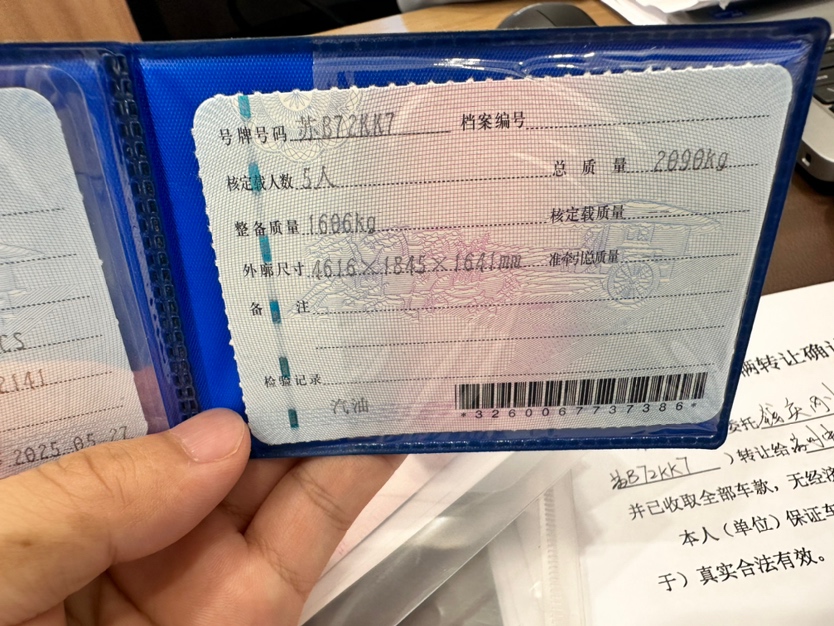 号牌号码 苏B72KK7 档案编号
核定载人数 5人 总质量 2090kg
整备质量 1606kg 核定载质量 --
外廓尺寸 4616×1845×1641mm 准牵引总质量
备注
检验记录
汽油
*3260067737386*
CS
2141
2025.05.27
辆转让确认
委托
苏B72KK7 ）转让给
并已收取全部车款，无经济
本人（单位）保证车
于）真实合法有效。